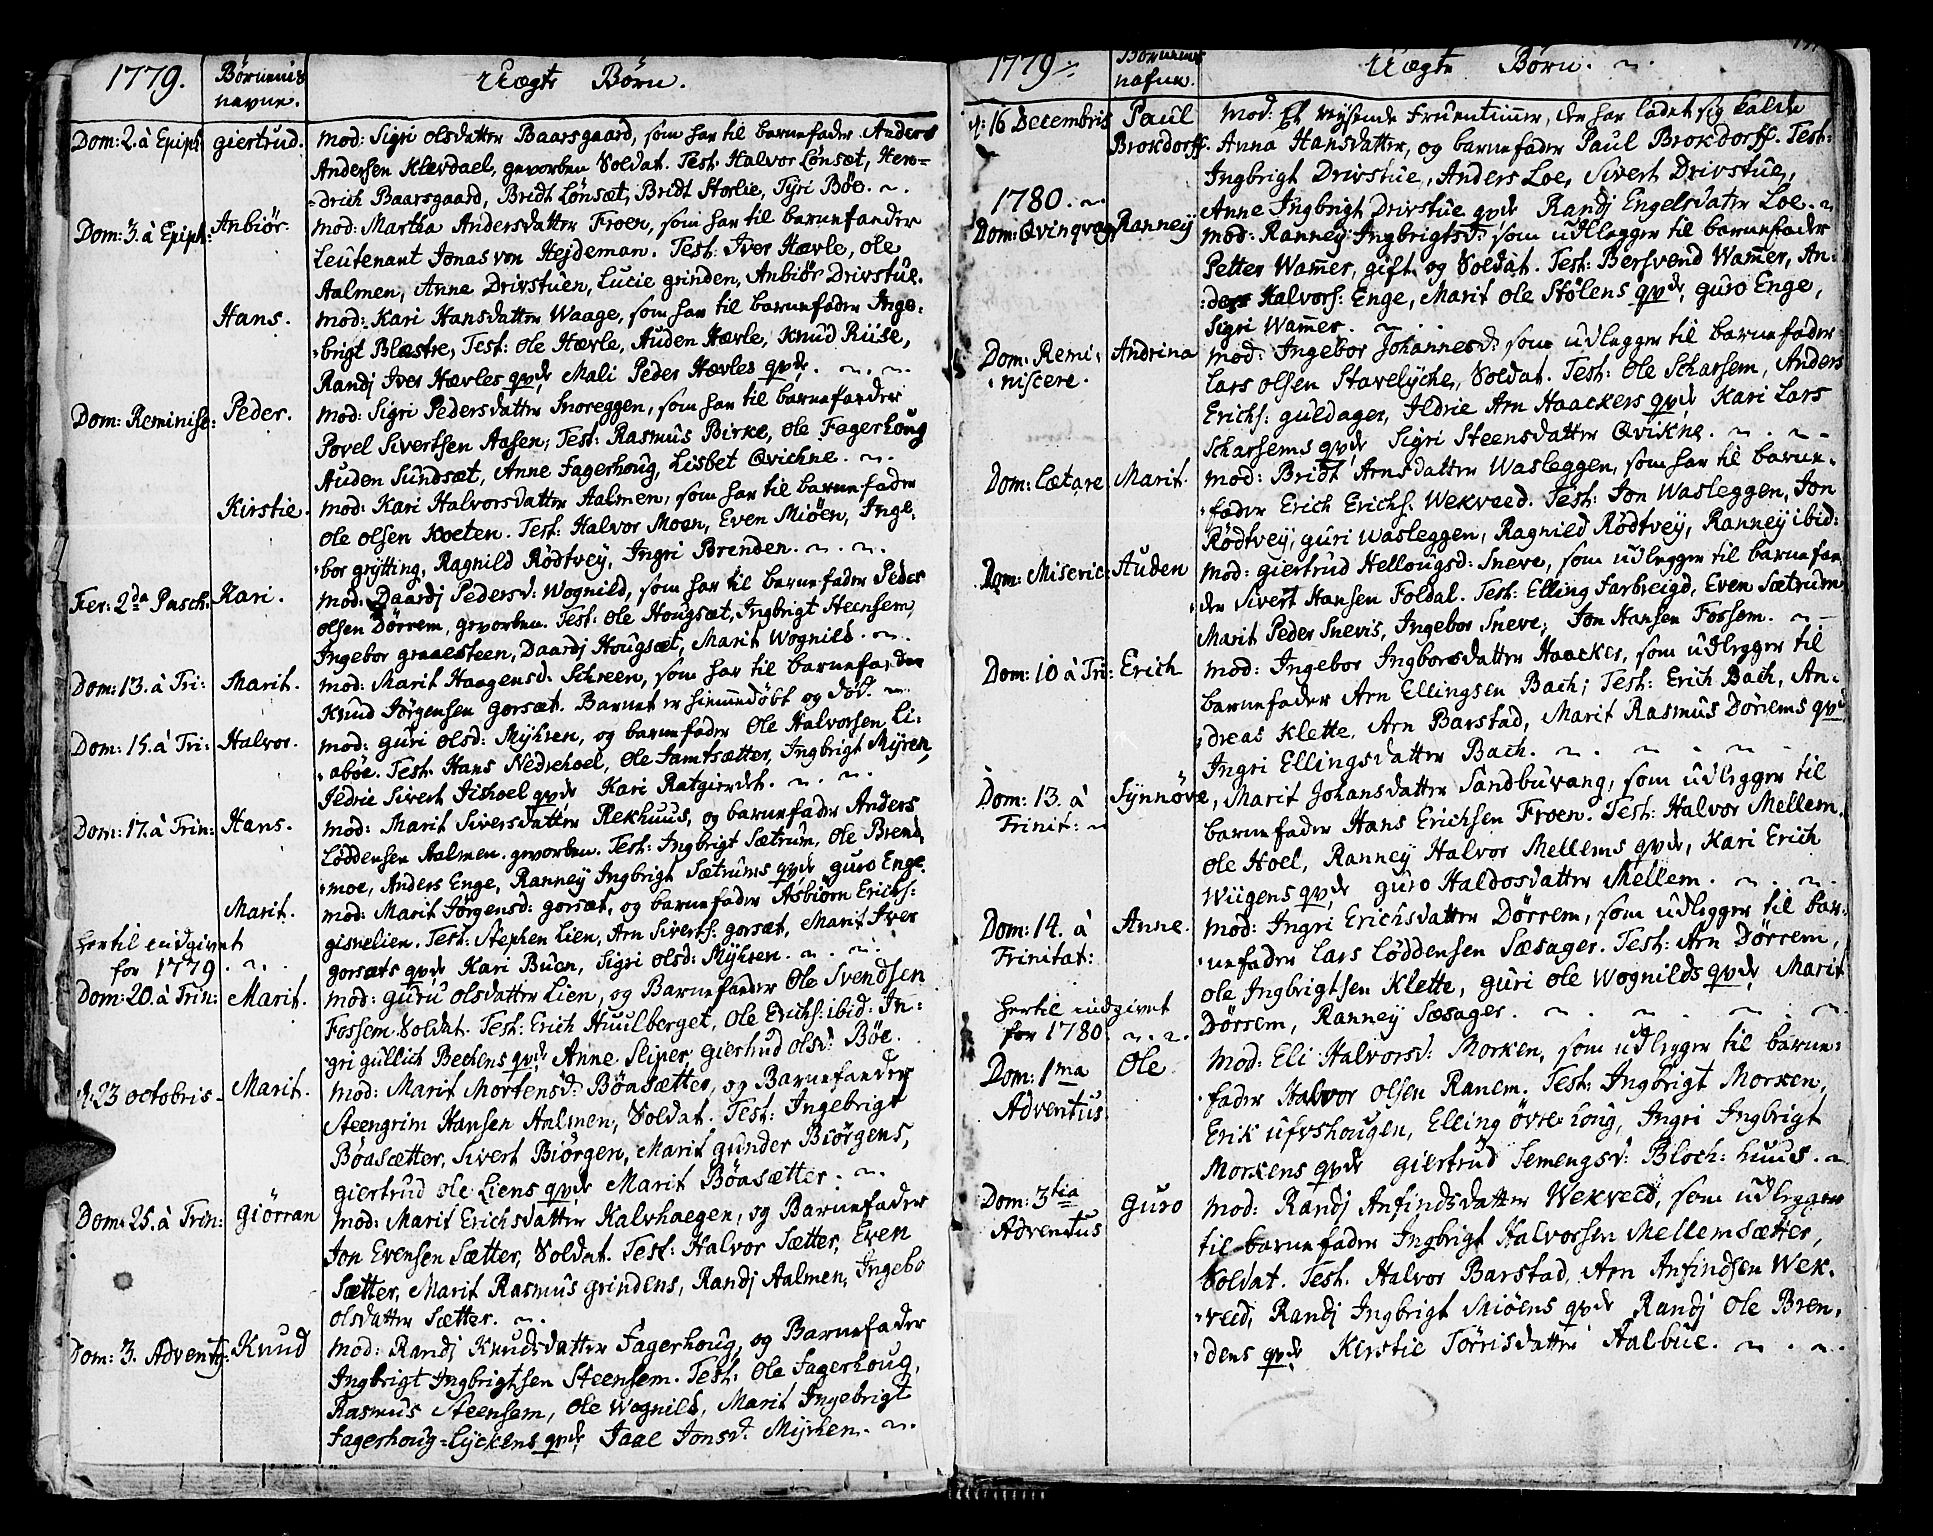 1779. Børnenis nevne. Uægte Børn.
Dom: 2. à Epiph: giertrud. Mod: Sigri Olsdatter Baarsgaard, som har til barnefader Anders
Andersen Klevdael, gevorben Soldat. Test: Halvor Lønsæt, Hen=
=drich Baarsgaard, Bridt Lønsæt, Bridt Storlie, Tyri Böe.
Dom: 3. à Epiph: Anbiör. Mod: Martha Andersdatter Froen, som har til barnefander
Leutenant Jonas von Hejdeman. Test: Iver Hævle, Ole
Aalmen, Anne Drivstuen, Lucie grinden, Anbiör Drivstue.
Hans. Mod: Kari Hansdatter Waage, som har til barnefader Inge:
:brigt Blæstre, Test: Ole Hævle, Auden Hævle, Knud Riise,
Randj Iver Hævles qvde Mali Peder Hævles qvde.
Dom: Reminisc: Peder. Mod: Sigri Pedersdatter Snoreggen, som har til barnefander
Povel Sivertsen Aasen; Test: Rasmus Birke, Ole Fagerhoug
Auden Sundsæt, Anne Fagerhoug, Lisbet Qvickne.
Kirstie. Mod: Kari Halvorsdatter Aalmen, som har til barnefader
Ole Olsen Koeten. Test: Halvor Moen, Even Miöen, Inge:
:bor grytting, Ragnild Rødtvey, Ingri Brenden.
Fer: 2da Pasch: Kari. Mod: Daardj Pedersd: Wognild, som har til barnefader Peder
Olsen Dörrem, gevorben. Test: Ole Hougsæt, Ingbrigt Heensem,
Ingebor graaesteen, Daardj Hougsæt, Marit Wognild.
Dom: 13. à Tri: Marit. Mod: Marit Haagensd: Schreen, som har til barnefader
Knud Jörgensen gorsæt. Barnet er hiemmedöbt og död.
Dom: 15. à Tri: Halvor. Mod: guri Olsd: Myhren, og barnefader Ole Halvorsen Li:
:aböe. Test: Hans Nedrehoel, Ole Jamtsætter, Ingbrigt Myren,
Ildrie Sivert Hoel qvde Kari Ratgierdet.
Dom: 17. à Trin: Hans. Mod: Marit Siversdatter Rekhuus, og barnefader Anders
Löddensen Aalmen. gevorben. Test: Ingbrigt Sætrum, Ole Brend,
:moe, Anders Enge, Ranney Ingbrigt Sætrums qvde guro Enge.
Marit. Mod: Marit Jörgensd: gorsæt, og barnefader Asbiörn Erichs:
hertil indgivet gisnelien. Test: Stephen Lien, Arn Siverts: gorsæt, Marit Iver
for 1779. gorsæts qvde Kari Buen, Sigri Olsd: Myhren.
Dom: 20. à Trin: Marit. Mod: guru Olsdatter Lien, og Barnefader Ole Svendsen
Fossem Soldat. Test: Erich Huulberget, Ole Erichs: ibid: In:
:gri gullich Bechens qvde Anne Sliper giertrud Olsd: Böe.
d: 23 Octobris. Marit. Mod: Marit Mortensd: Böasætter, og Barnefander
Steengrim Hansen Aalmen, Soldat. Test: Ingebrigt
Böasætter, Sivert Biörgen, Marit gunder Biörgens,
giertrud Ole Liens qvde Marit Böasætter.
Dom: 25. à Trin: giörran Mod: Marit Erichsdatter Kalvhaegen, og Barnefader
Jon Evensen Sætter, Soldat. Test: Halvor Sætter, Even
Sætter, Marit Rasmus grindens, Randj Aalmen, Ingebo
Olsdatter Sætter.
Dom: 3. Advent: Knud Mod: Randj Knudsdatter Fagerhoug, og Barnefader
Ingbrigt Ingbrigtsen Steensem. Test: Ole Fagerhoug,
Rasmus Steensem, Ole Wognild, Marit Ingebrigt
Fagerhoug=Lyckens qvde Jaae Jonsd: Myhren.
1779. Børnenes nafne. Uægte Børn.
d: 16 Decembris Paul Brokdorff. Mod: Et reysende Fruentimmer, der har ladet sig kalde
Anna Hansdatter, og barnefader Paul Brokdorff. Test:
Ingbrigt Drivstue, Anders Loe, Sivert Drivstue,
1780. Anne Ingbrigt Drivstue qvde Randj Engelsdater Loe.
Dom: Qvinqvag: Ranney Mod: Ranney Ingbrigtsd: som udlegger til barnefader
Petter Wammer, gift og Soldat. Test: Bersvend Wammer, An:
:ders Halvors: Enge, Marit Ole Stölens qvde, guro Enge,
Sigri Wammer.
Dom: Remi: :niscere. Andrina Mod: Ingebor Johannesd: som udlegger til barnefader
Lars Olsen Stavelycke, Soldat. Test: Ole Scharsem, Anders
Erichs: guldager, Ildrie Arn Haackers qvde Kari Lars
Scharsems qvde Sigri Steensdatter Qvikne.
Dom: Lætare Marit. Mod: Bridt Arnsdatter Wasleggen, som har til barne:
:fader Erich Erichs: Wekveed. Test: Jon Wasleggen, Jon
Rödtvey, guri Wasleggen, Ragnild Rödtvey, Ranney ibid:
Dom: Miseric: Auden Mod: giertrud Hellougsd: Sneve, som udlegger til barnefan
:der Sivert Hansen Foldal. Test: Elling Farbreigd, Even Sætrum
Marit Peder Snevis, Ingebor Sneve, Jon Hansen Fossem.
Dom: 10 à Tri: Erich Mod: Ingebor Ingborsdatter Haacker, som udlegger til
barnefader Arn Ellingsen Bach; Test: Erich Bach, An:
:dreas Klette, Arn Barstad, Marit Rasmus Dörrems qvde
Ingri Ellingsdatter Bach.
Dom: 13. à Trinit: Synnöve, Marit Johansdatter Sandbuvang, som udlegger til
barnefader Hans Erichsen Froen. Test: Halvor Mellem,
Ole Hoel, Ranney Halvor Mellems qvde, Kari Erich
Wiigens qvde guro Haldosdatter Mellem.
Dom: 14. à Trinitat: Anne. Mod: Ingri Erichsdatter Dörrem, som udlegger til bar:
:nefader Lars Löddensen Sæsager. Test: Arn Dörrem,
Ole Ingbrigtsen Klette, guri Ole Wognilds qvde Marit
hertil indgivet for 1780. Dörrem, Ranney Sæsager.
Dom: 1ma Adventus Ole Mod: Eli Halvorsd: Morken, som udlegger til barne:
:fader Halvor Olsen Ranem. Test: Ingbrigt Morken,
Erik Ufvshougen, Elling övre houg, Ingri Ingbrigt
Morkens qvde giertrud Semengsd: Bloch: huus.
Dom: 3tia Adventus guro Mod: Randj Anfindsdatter Wekveed, som udlegger
til barnefader Ingbrigt Halvorsen Mellemsætter,
Soldat. Test. Halvor Barstad, Arn Anfindsen Wek:
:veed, Randj Ingbrigt Miöens qvde Randj Ole Bren:
:dens qvde Kirstie Törrisdatter Aalbue.